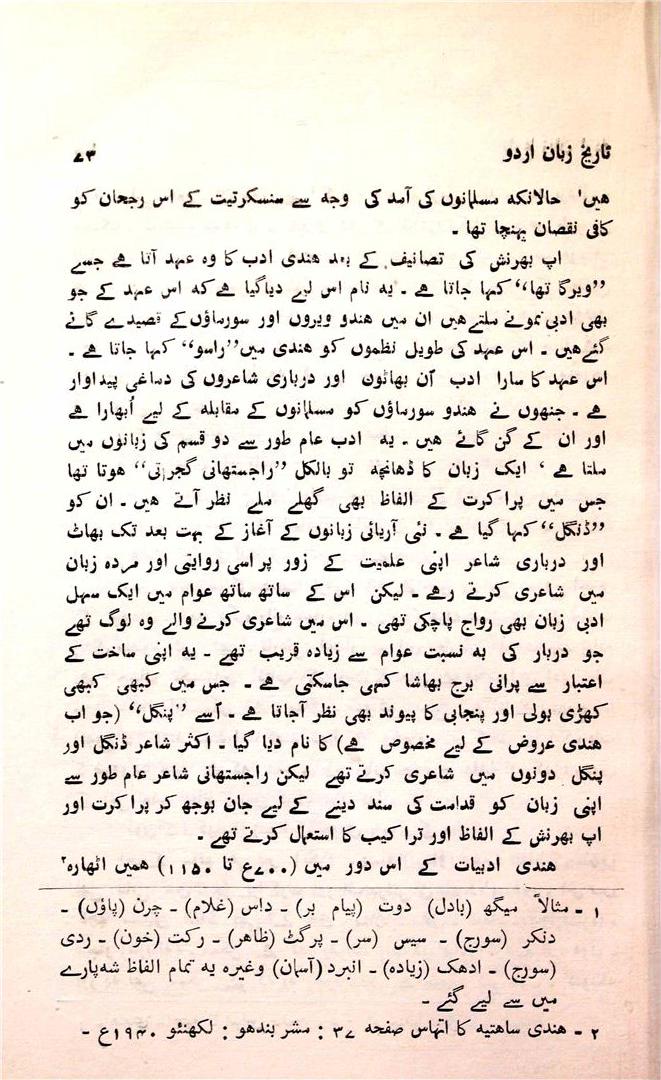 تاریخ زبان اردو ۷۳
ھیں' حالانکہ مسلمانوں کی آمد کی وجہ سے سنسکرتیت کے اس رجحان کو
کافی نقصان پہنچا تھا ۔
اپ بھرنش کی تصانیف کے بعد ھندی ادب کا وہ عہد آتا ہے جسے
”ویرگا تھا“ کہا جاتا ہے ۔ یہ نام اس لیے دیاگیا ہےکہ اس عہد کے جو
بھی ادبی نمونے ملتےھیں ان میں ھندو ویروں اور سورماؤں کے قصیدے گائے
گئےھیں ۔ اس عہد کی طویل نظموں کو ھندی میں”راسو“ کہا جاتا ہے ۔
اس عہدکا سارا ادب اُن بھاٹوں اور درباری شاعروں کی دماغی پیداوار
ہے ۔ جنھوں نے ھندو سورماؤں کو مسلمانوں کے مقابلہ کے لیے اُبھارا ہے
اور ان کے گن گائے ھیں ۔ یہ ادب عام طور سے دو قسم کی زبانوں میں
ملتا ہے ' ایک زبان کا ڈھانچہ تو بالکل ”راجستھانی گجراتی“ ھوتا تھا
جس میں پراکرت کے الفاظ بھی گھلے ملے نظر آتے ھیں ۔ ان کو
”ڈنگل“ کہا گیا ہے ۔ نئی آریائی زبانوں کے آغاز کے بہت بعد تک بھاٹ
اور درباری شاعر اپنی علمیت کے زور پر اسی روایتی اور مردہ زبان
میں شاعری کرتے رہے ۔ لیکن اس کے ساتھ ساتھ عوام میں ایک سہل
ادبی زبان بھی رواج پاچکی تھی ۔ اس میں شاعری کرنے والے وہ لوگ تھے
جو دربار کی بہ نسبت عوام سے زیادہ قریب تھے ۔ یہ اپنی ساخت کے
اعتبار سے پرانی برج بھاشا کہی جاسکتی ہے ۔ جس میں کبھی کبھی
کھڑی بولی اور پنجابی کا پیوند بھی نظر آجاتا ہے ۔ اُسے ”پنگل“ (جو اب
ھندی عروض کے لیے مخصوص ہے) کا نام دیا گیا ۔ اکثر شاعر ڈنگل اور
پنگل دونوں میں شاعری کرتے تھے لیکن راجستھانی شاعر عام طور سے
اپنی زبان کو قدامت کی سند دینے کے لیے جان بوجھ کر پراکرت اور
اپ بھرنش کے الفاظ اور تراکیب کا استعمال کرتے تھے ۔
ھندی ادبیات کے اس دور میں (۷۰۰ع تا ۱۱۵۰) ھمیں اٹھارہ۲
۱ ۔ مثالاً میگھ (بادل) دوت (پیام بر) ۔ داس (غلام) ۔ چرن (پاؤں) ۔
دنکر (سورج) ۔ سیس (سر) ۔ پرگٹ (ظاھر) ۔ رکت (خون) ۔ ردی
(سورج) ۔ ادھک (زیادہ) ۔ انبرد (آسمان) وغیرہ یہ تمام الفاظ شہ پارے
میں سے لیے گئے ۔
۲ ۔ ھندی ساھتیہ کا اتہاس صفحہ ۳۷ : مشر بندھو : لکھنئو ۱۹۴۰ع ۔